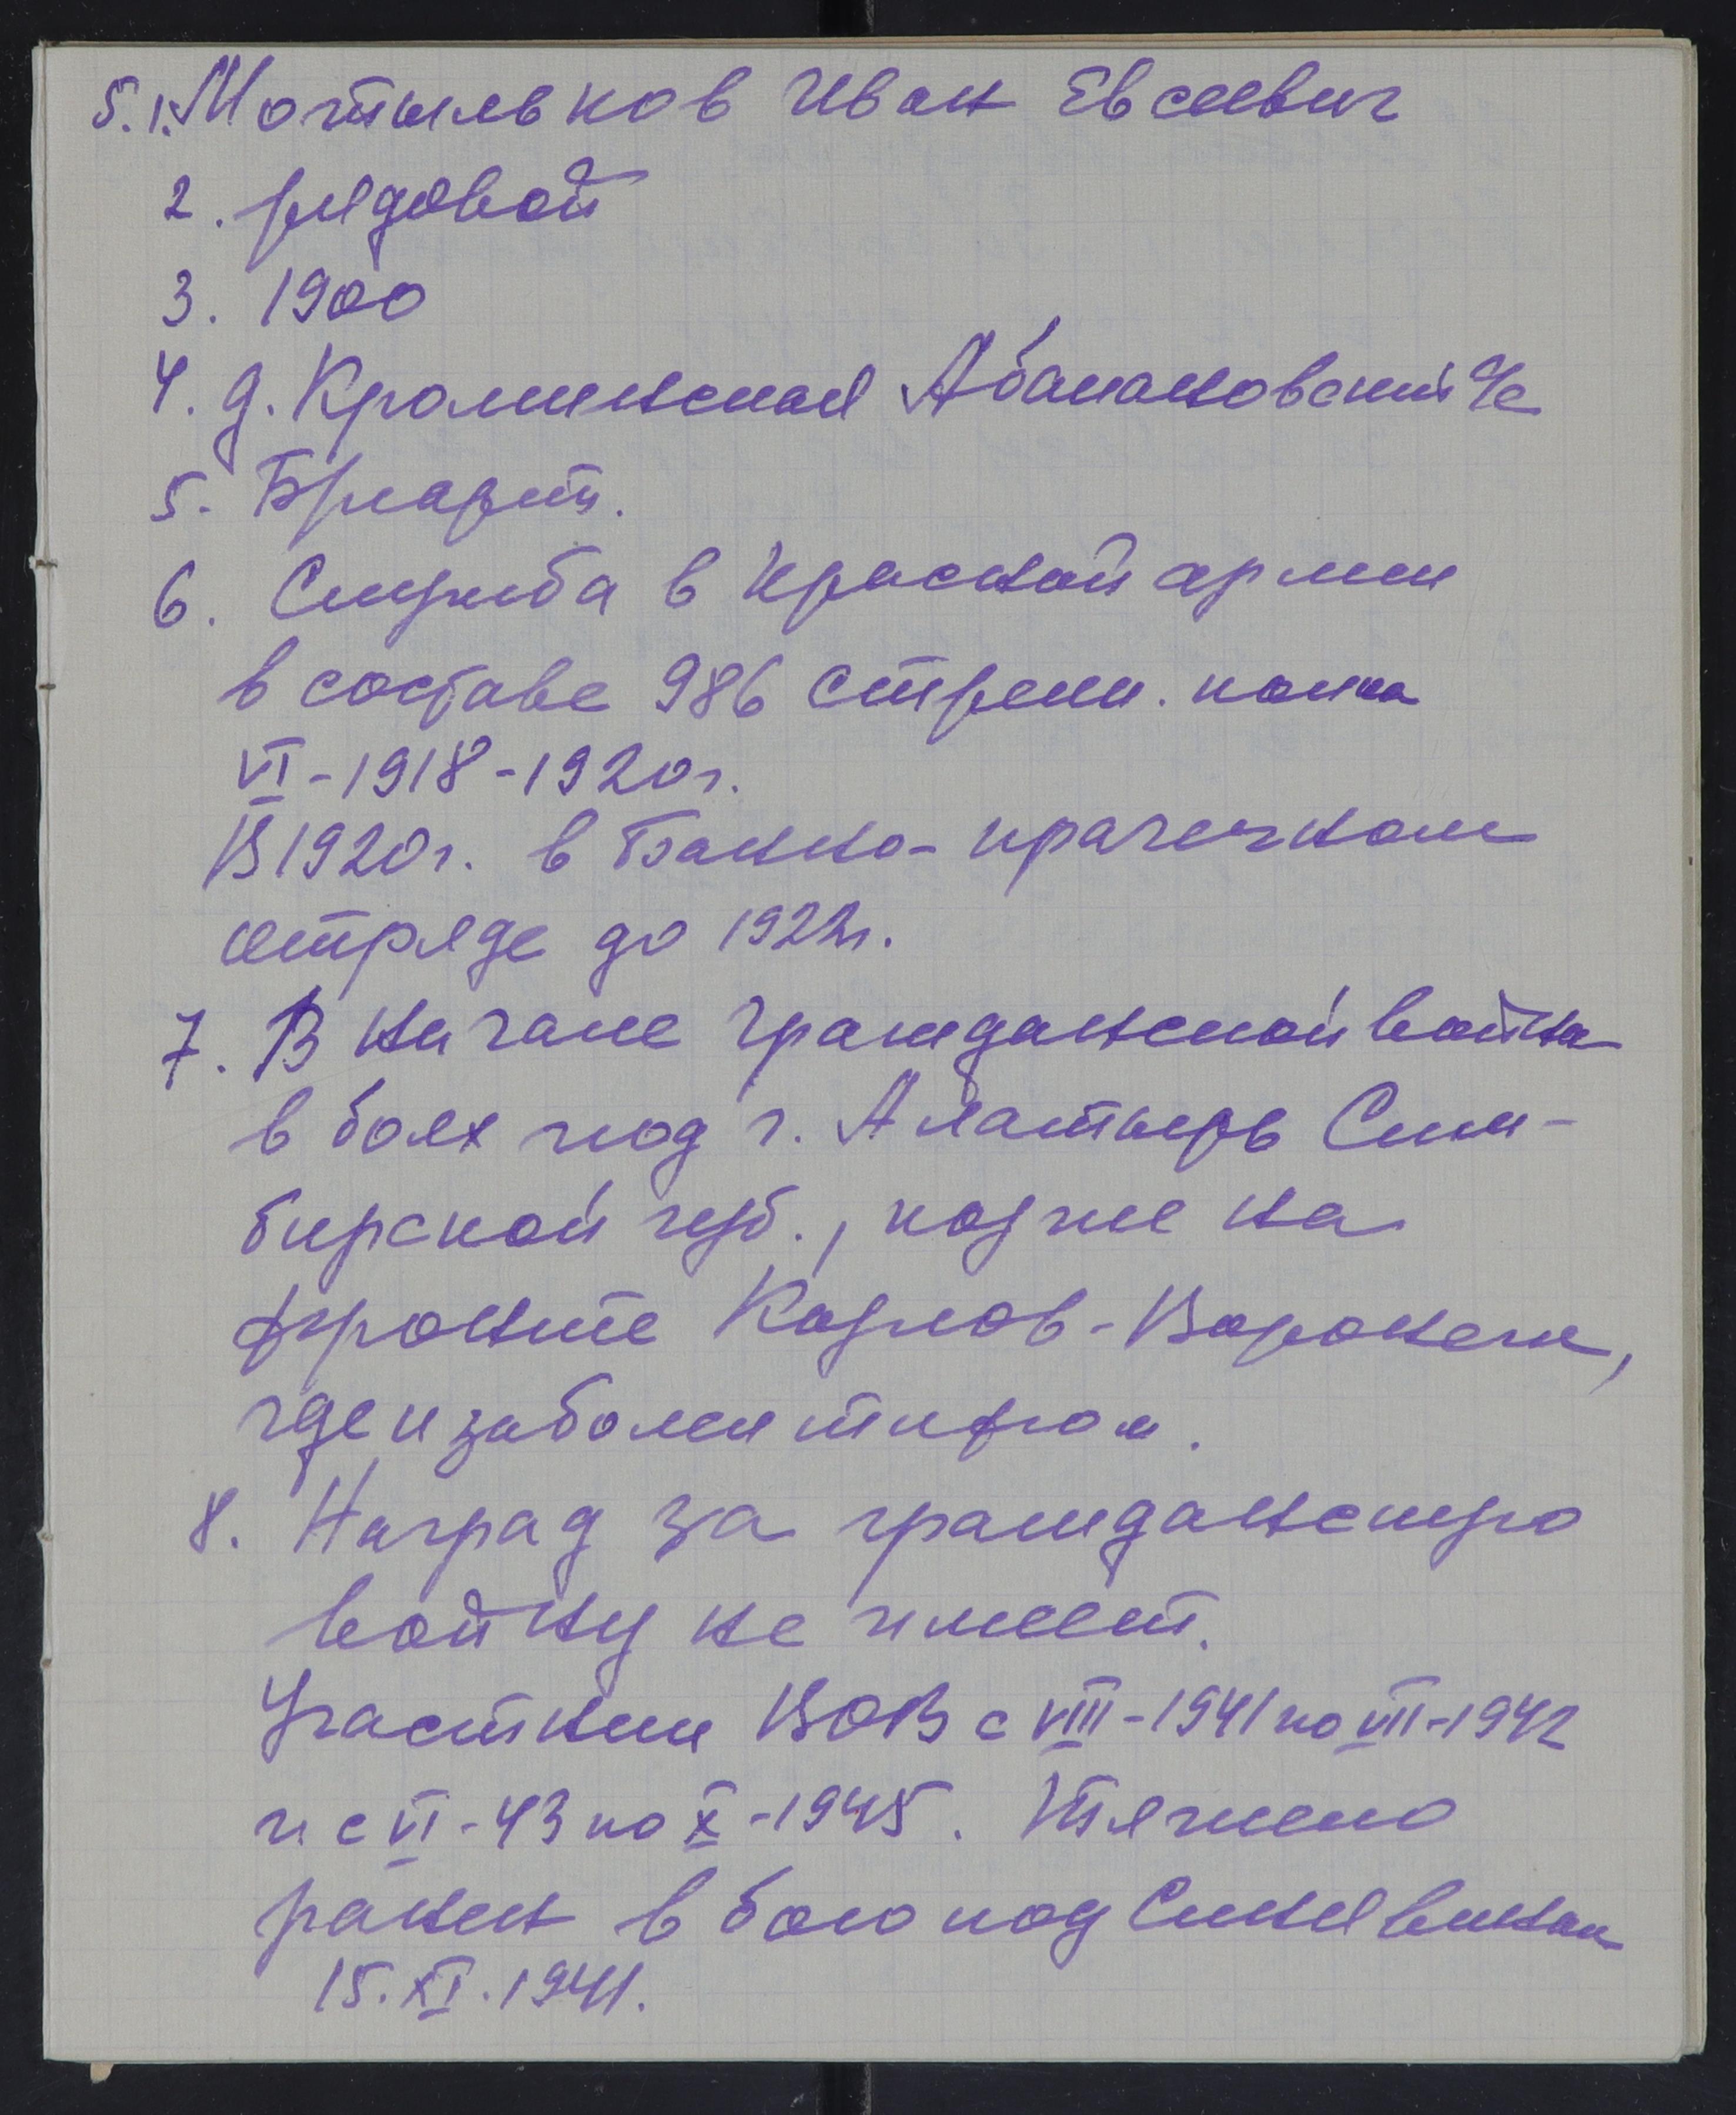 5.1. Мотыльков Иван Евсеевич
2. рядовой
3. 1900
4. д. Кроминская Абакановский с/с
5. Б/парт.
6. Служба в Красной армии
в составе 986 стрелк. полка
VI-1918-1920г.
В 1920г. в Банно-прачечном
отряде до 1922г.
7. В начале гражданской война
в боях под г. Алатырь Сим-
бирской губ., позже на
фронте Козлов-Воронеж,
где и заболел тифом.
8. Наград за гражданскую
войну не имеет.
Участник ВОВ с VIII-1941 по VII-1942
и с VI-43 по X-1945. Тяжело
ранен в бою под Синявиным
15.XI.1941.